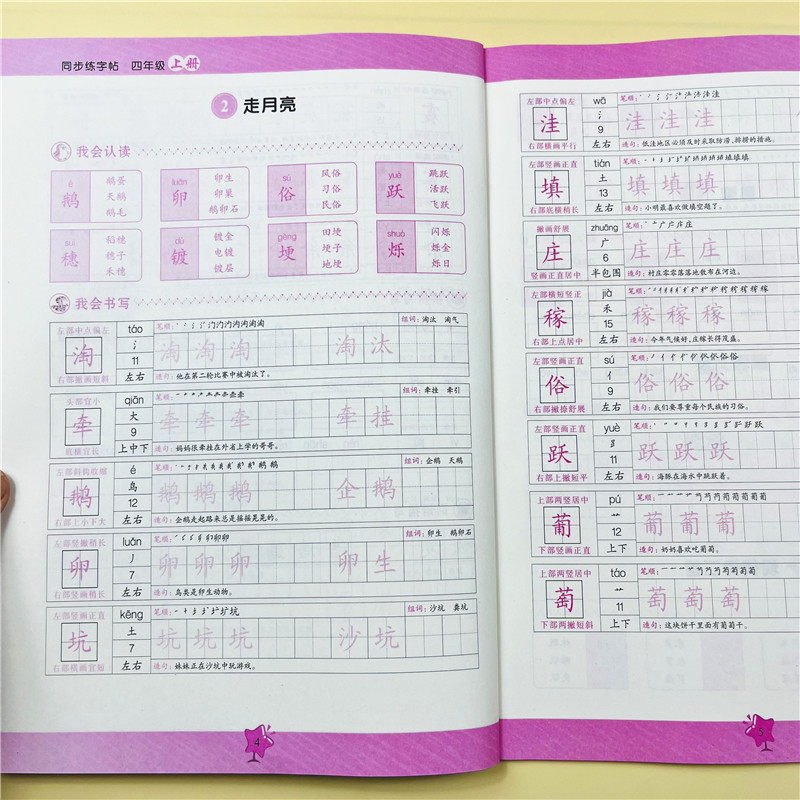 同步练字帖 四年级 上册
2 走月亮
我会认读
é 鹅 鹅蛋 天鹅 鹅毛
luǎn 卵 卵生 卵巢 鹅卵石
sú 俗 风俗 习俗 民俗
yuè 跃 跳跃 活跃 飞跃
suì 穗 稻穗 穗子 禾穗
dù 镀 镀金 电镀 镀层
gěng 埂 田埂 埂子 地埂
shuò 烁 闪烁 烁金 烁日
我会书写
左部中点偏左 táo 笔顺: 组词:淘汰 淘气
淘 氵 淘 淘 淘 淘 汰
11
右部撇画短斜 左右 造句:他在第二轮比赛中被淘汰了。
头部宜小 qiān 笔顺: 组词:牵挂 牵引
牵 大 牵 牵 牵 牵 挂
9
底横宜长 上中下 造句:妈妈很牵挂在外省上学的哥哥。
左部斜钩收缩 é 笔顺: 组词:企鹅 天鹅
鹅 鸟 鹅 鹅 鹅 企 鹅
12
右部上小下大 左右 造句:企鹅走起路来总是摇摇晃晃的。
左部竖撇稍长 luǎn 笔顺: 组词:卵生 鹅卵石
卵 丿 卵 卵 卵 卵 生
7
右部竖画稍长 左右 造句:鸟类是卵生动物。
左部竖画正直 kēng 笔顺: 组词:沙坑 粪坑
坑 土 坑 坑 坑 沙 坑
7
右部横画宜短 左右 造句:妹妹正在沙坑中玩游戏。
4
左部中点偏左 wā 笔顺:
洼 氵 洼 洼 洼
9
右部横画平行 左右 造句:低洼地区必须及时采取防涝、排涝的措施。
左部竖画正直 tián 笔顺:
填 土 填 填 填
13
右部底横稍长 左右 造句:小明最喜欢做填空题了。
撇画舒展 zhuāng 笔顺:
庄 广 庄 庄 庄
6
竖画正直居中 半包围 造句:村庄零零落落地散布在河边。
左部横短竖正 jià 笔顺:
稼 禾 稼 稼 稼
15
右部上点居中 左右 造句:今年气候好,庄稼长得茂盛。
左部竖画正直 sú 笔顺:
俗 亻 俗 俗 俗
9
右部撇捺舒展 左右 造句:我们要尊重每个民族的习俗。
左部竖画正直 yuè 笔顺:
跃 跃 跃 跃
右部上撇短平 左右 造句:海豚在海水中跳跃着。
上部两竖居中 pú 笔顺:
葡 艹 葡 葡 葡
12
下部竖画正直 上下 造句:奶奶喜欢吃葡萄。
上部两竖居中 táo 笔顺:
萄 艹 萄 萄 萄
11
下部两撇短斜 上下 造句:这块饼干里面有葡萄干。
5